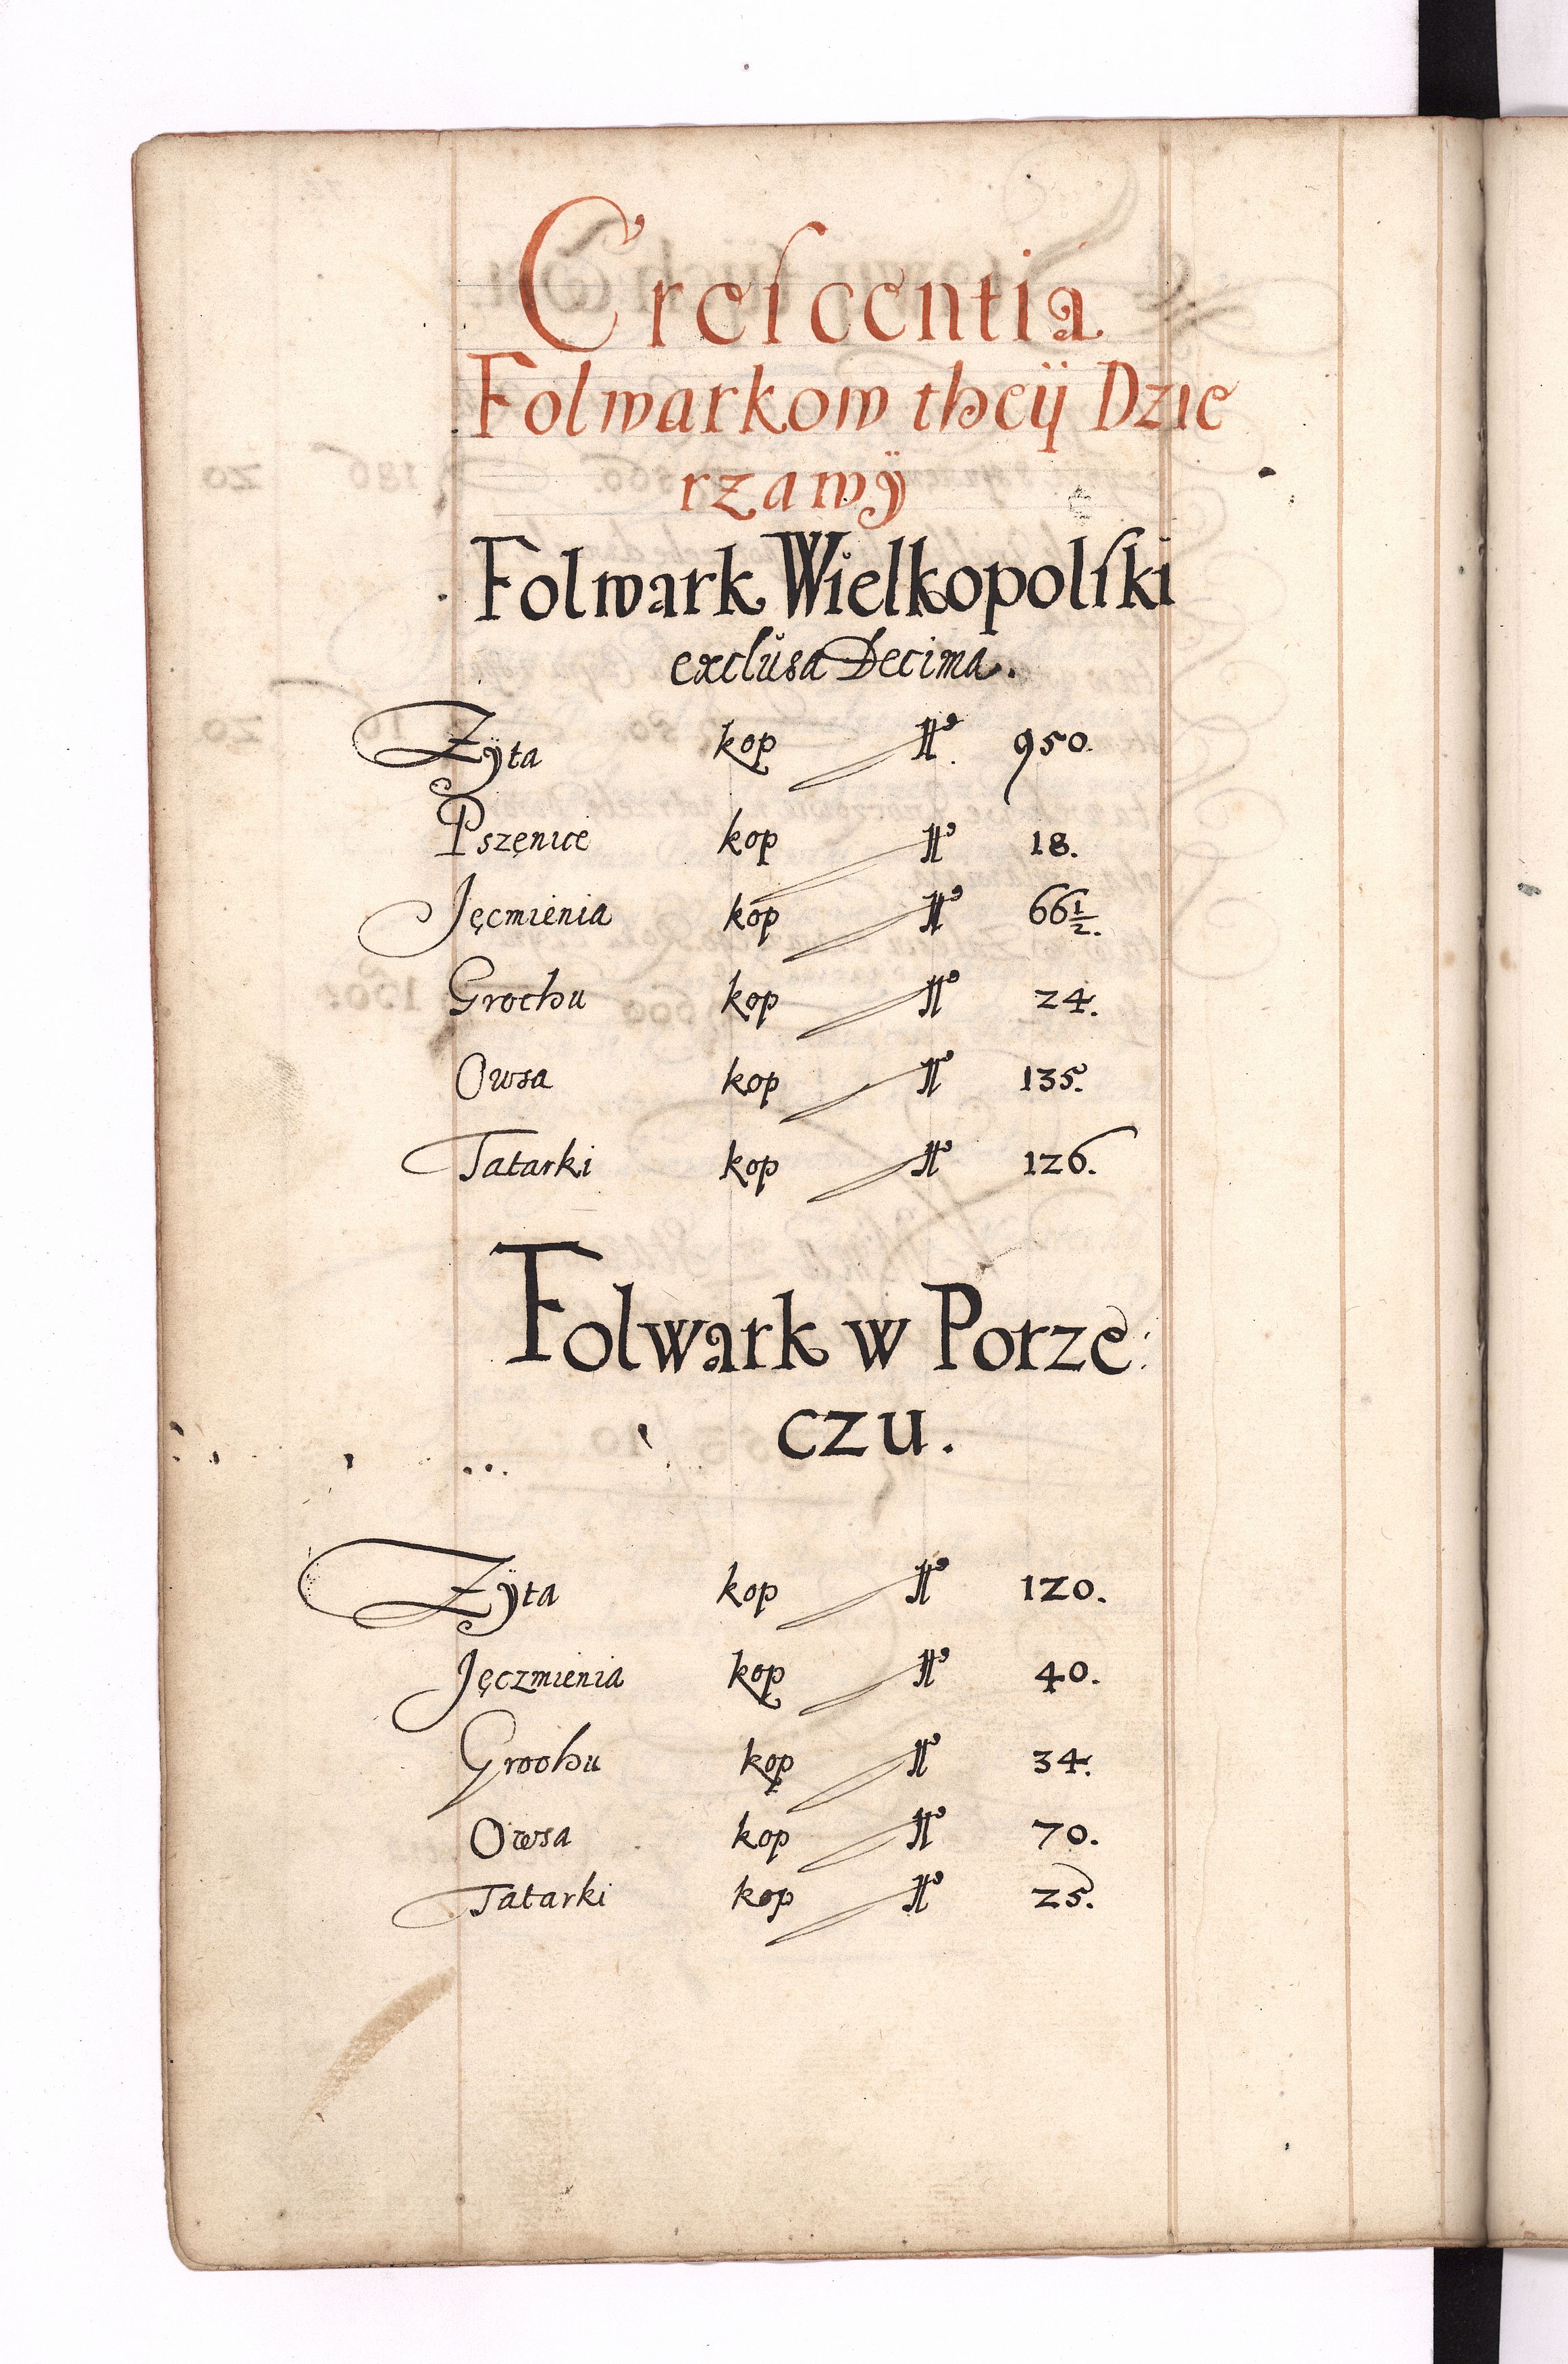 Creſcentia
Folwarkow theÿ Dzie
rzawÿ
Folwark Wielkopolſki
exclusa Decima.
Zÿta kop № 950.
Pszęnice kop № 18.
Jęcmienia kop № 66 1/2.
Grochu kop № 24.
Owsa kop № 135.
Tatarki kop № 126.
Folwark w Porze:
czu.
Zÿta kop № 120.
Jęczmienia kop № 40.
Grochu kop № 34.
Owsa kop № 70.
Tatarki kop № 25.